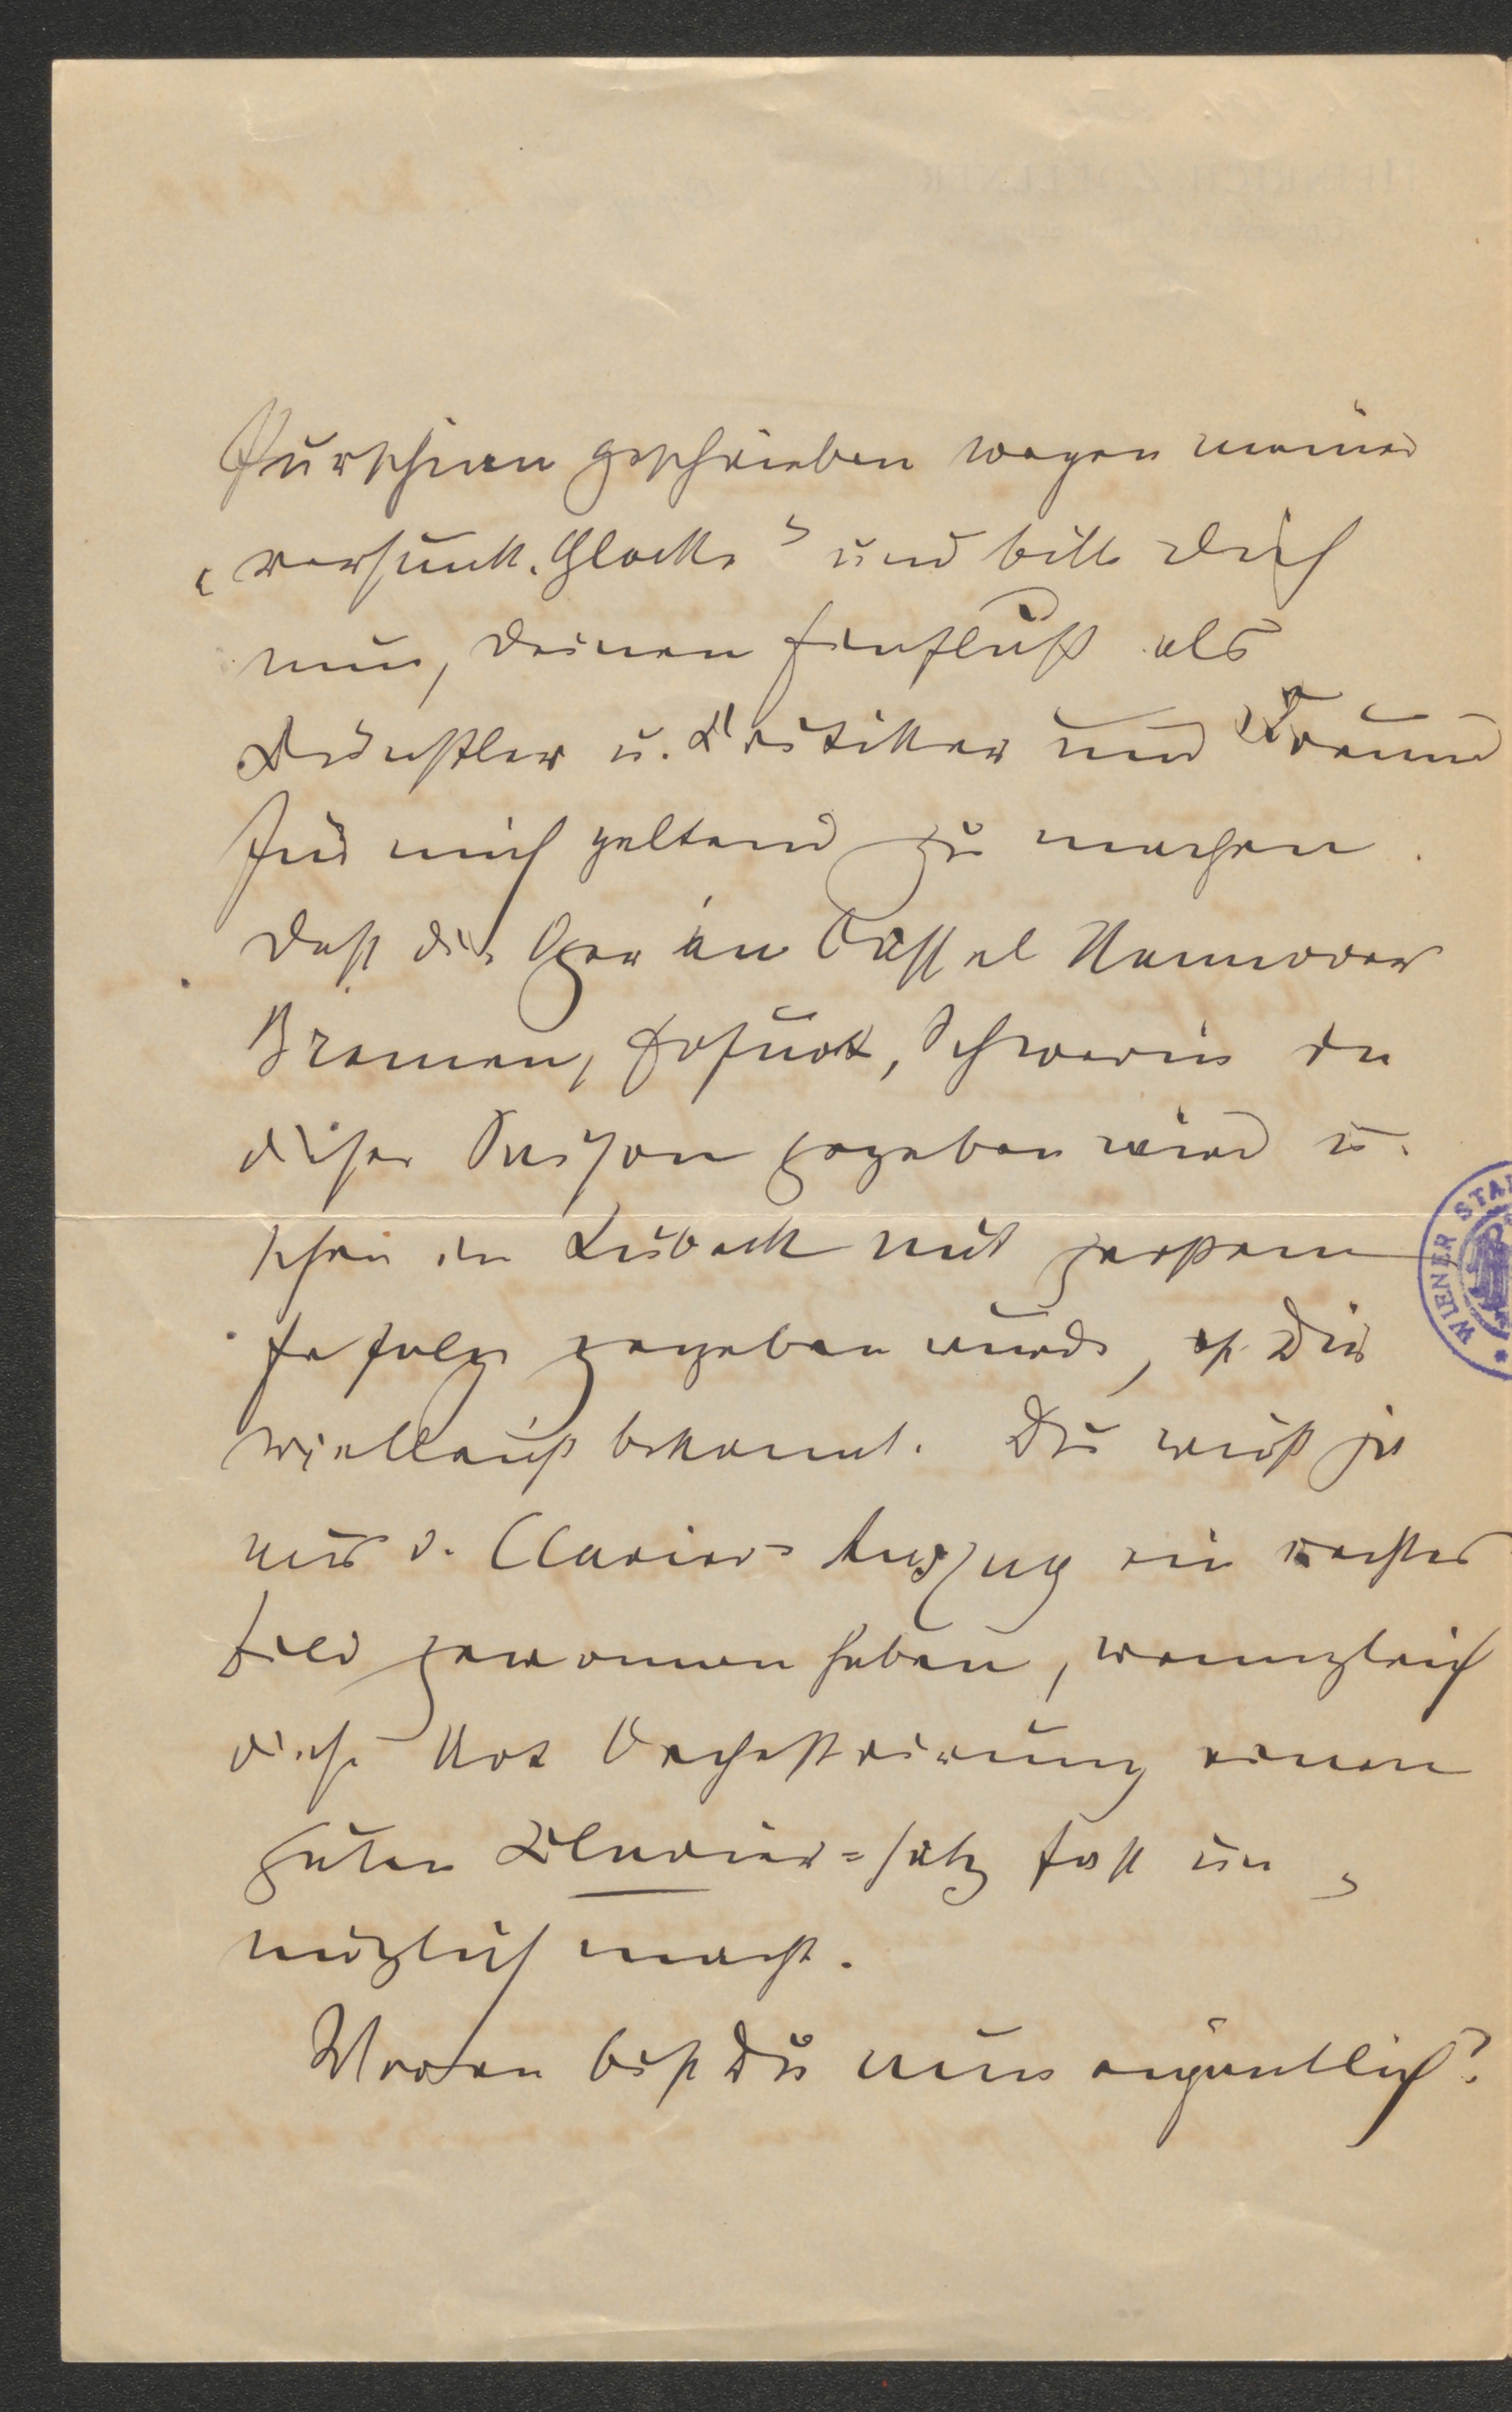 Purschian geschrieben wegen meiner
„versunk. Glocke“ und bitte Dich
nun, Deinen Einfluß als
Künstler u. Kritiker und Freund
für mich geltend zu machen.
Daß die Oper in Cassel Hannover
Bremen, Erfurt, Schwerin in
dieser Saison gegeben wird u.
schon in Lübeck mit großem
Erfolge gegeben wurde, ist Dir
vielleicht bekannt. Du wirst ja
aus d. Clavier-Auszug ein rechtes
Bild gewonnen haben, wenngleich
diese Art Orchestrirung einen
guten Klavier=satz fast un-
möglich macht.
Woran bist Du nun eigentlich?
WIENER STA